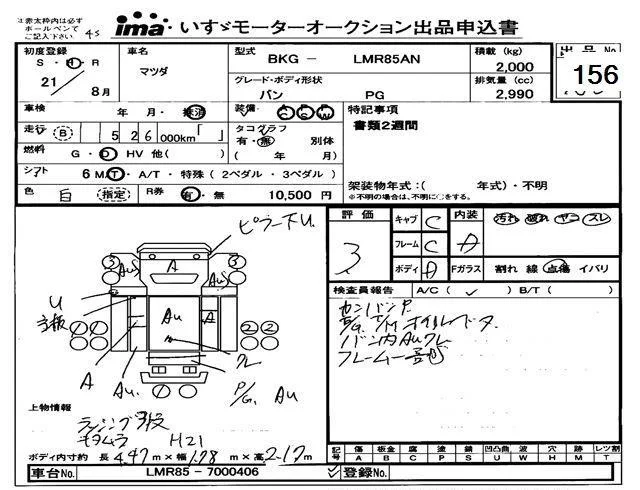 注赤太枠内は必ず
ボールペンで
ご記入下さい
ima いすゞモーターオークション出品申込書
初度登録
S・H・R
21 8月
車名
マツダ
型式
BKG － LMR85AN
グレード・ボディ形状
バン PG
積載 (kg)
2,000
排気量 (cc)
2,990
出品 No
156
車検 年 月・抹消
装備 A/C P/S P/W
走行 B 526 000km 「 」
タコグラフ
有・無 別体
( 年 月)
燃料 G・D HV 他( )
シフト 6 M/T・A/T・特殊 ( 2ペダル ・ 3ペダル )
色 白 (指定) R券 有・無 10,500 円
特記事項
書類2週間
架装物年式：( 年式)・不明
※不明の場合は、不明に○をする。
評価 3
キャブ C
フレーム C
ボディ A
内装 A 汚れ 破れ ヤニ スレ
Fガラス 割れ 線 点傷 イバリ
検査員報告 A/C ( ✓ ) B/T ( )
バン内Auクレ
フレーム一部
ピラー下U
3 3
Au A Au
U
Au A
2 2
A Au クレ P/G, Au
上物情報
キタムラ H21
ボディ内寸約 長 4.47 m×幅 1.78 m×高 2.17 m
車台No. LMR85 － 7000406
登録No.
記号 傷 板金 腐 塗 錆 凹凸曲 波 穴 跡 レツ割
A B C P S U W H M T